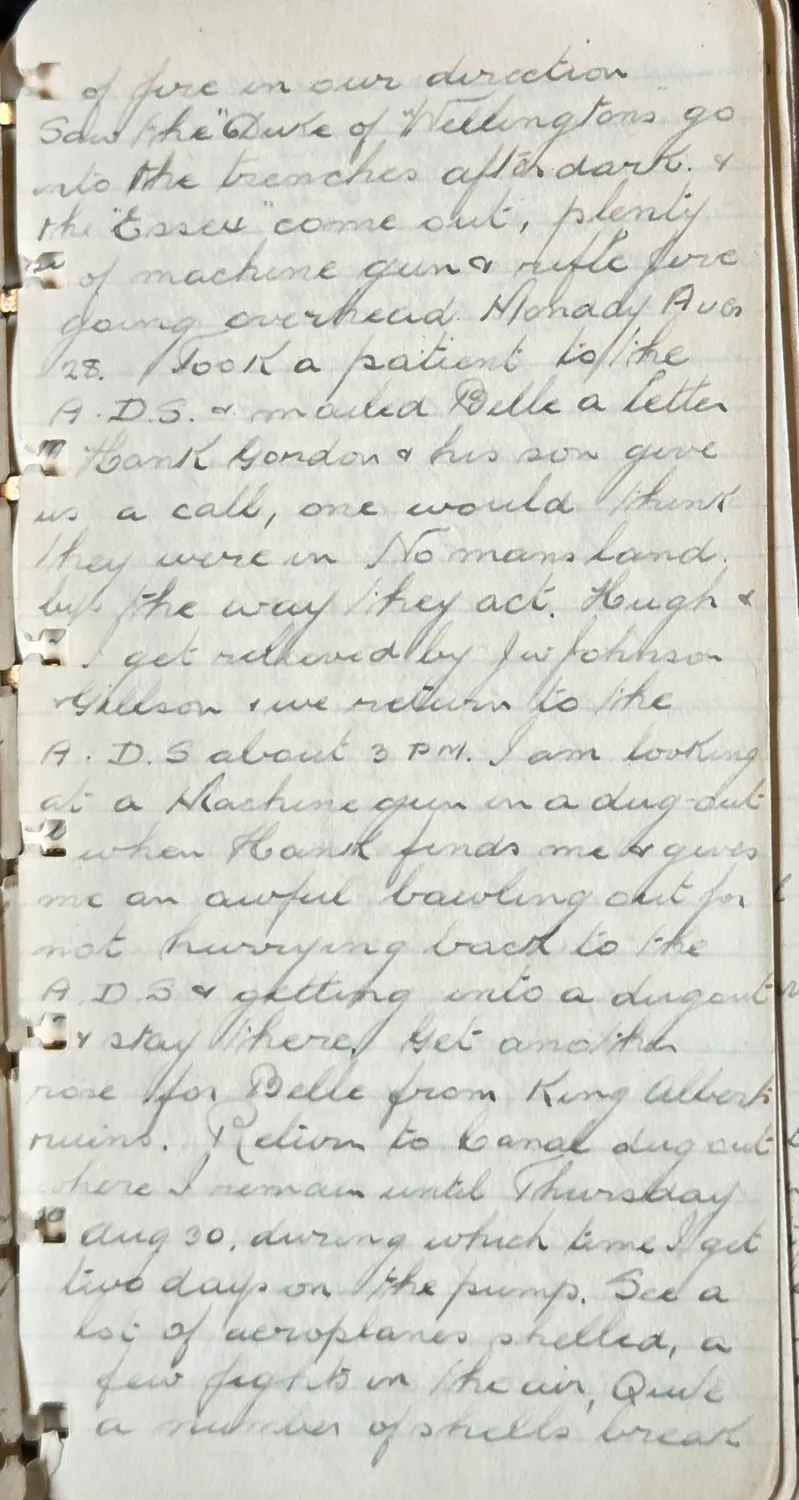 of fire in our direction
Saw the "Duke of Wellingtons" go
into the trenches after dark. &
the "Essex" come out, plenty
of machine gun & rifle fire
going overhead. Monady Aug
28. Took a patient to the
A.D.S. & mailed Belle a letter
Hank Gordon & his son give
us a call, one would think
they were in No mans land.
by the way they act. Hugh &
I get relieved by Jw Johnson
& Gillson & we return to the
A.D.S about 3 PM. I am looking
at a Machine gun in a dug-out
when Hank finds me & gives
me an awful bawling out for
not hurrying back to the
A.D.S & getting into a dugout
& stay there. Get another
rose for Belle from King Albert
ruins. Return to Canal dug out
where I remain until Thursday
Aug 30, during which time I get
two days on the pump. See a
lot of aeroplanes shelled, a
few fights in the air, Quite
a number of shells break